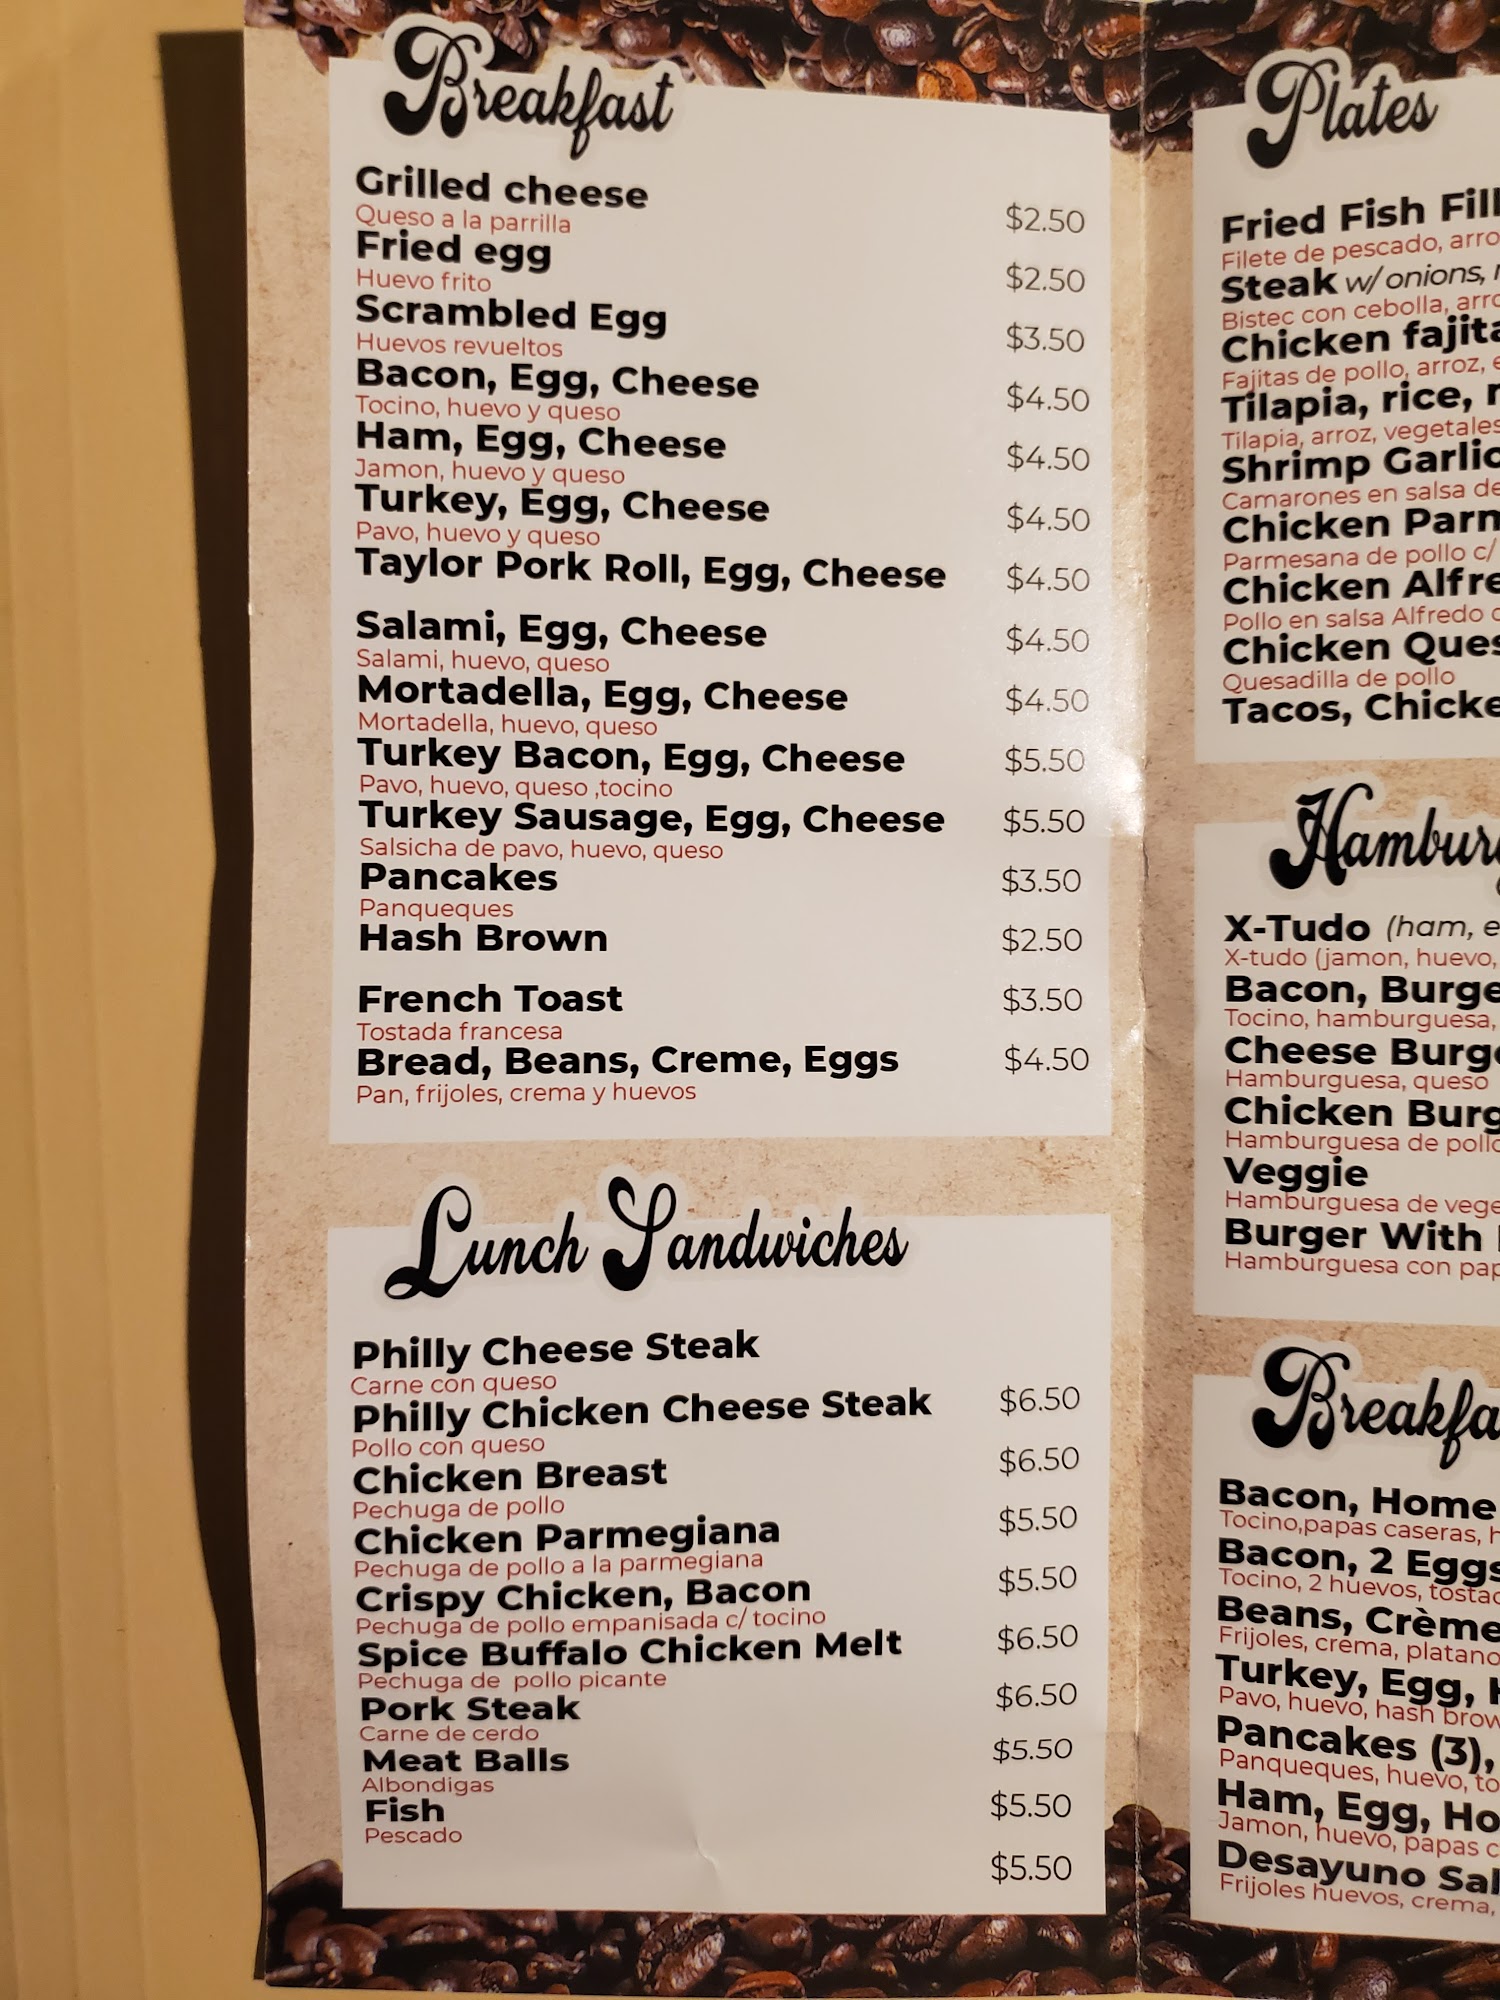 Breakfast
Grilled cheese
Queso a la parrilla
$2.50
Fried egg
Huevo frito
$2.50
Scrambled Egg
Huevos revueltos
$3.50
Bacon, Egg, Cheese
Tocino, huevo y queso
$4.50
Ham, Egg, Cheese
Jamon, huevo y queso
$4.50
Turkey, Egg, Cheese
Pavo, huevo y queso
$4.50
Taylor Pork Roll, Egg, Cheese
$4.50
Salami, Egg, Cheese
Salami, huevo, queso
$4.50
Mortadella, Egg, Cheese
Mortadella, huevo, queso
$4.50
Turkey Bacon, Egg, Cheese
Pavo, huevo, queso ,tocino
$5.50
Turkey Sausage, Egg, Cheese
Salsicha de pavo, huevo, queso
$5.50
Pancakes
Panqueques
$3.50
Hash Brown
$2.50
French Toast
Tostada francesa
$3.50
Bread, Beans, Creme, Eggs
Pan, frijoles, crema y huevos
$4.50
Lunch Sandwiches
Philly Cheese Steak
Carne con queso
$6.50
Philly Chicken Cheese Steak
Pollo con queso
$6.50
Chicken Breast
Pechuga de pollo
$5.50
Chicken Parmegiana
Pechuga de pollo a la parmegiana
$5.50
Crispy Chicken, Bacon
Pechuga de pollo empanisada c/ tocino
$6.50
Spice Buffalo Chicken Melt
Pechuga de pollo picante
$6.50
Pork Steak
Carne de cerdo
$5.50
Meat Balls
Albondigas
$5.50
Fish
Pescado
$5.50
Plates
Fried Fish
Filete de pescado,
Steak w/ onions,
Bistec con cebolla,
Chicken
Fajitas de pollo, arroz,
Tilapia, rice,
Tilapia, arroz, vegetales
Shrimp Garlic
Camarones en salsa de
Chicken
Parmesana de pollo c/
Chicken
Pollo en salsa Alfredo
Chicken
Quesadilla de pollo
Tacos,
X-Tudo (ham,
X-tudo (jamon, huevo,
Bacon,
Tocino, hamburguesa,
Cheese
Hamburguesa, queso
Chicken
Hamburguesa de
Veggie
Hamburguesa de
Burger With
Hamburguesa con
Bacon, Home
Tocino,papas caseras,
Bacon, 2 Eggs
Tocino, 2 huevos,
Beans, Crème
Frijoles, crema,
Turkey, Egg,
Pavo, huevo, hash
Pancakes (3),
Panqueques, huevo,
Ham, Egg,
Jamon, huevo, papas
Desayuno
Frijoles huevos, crema,